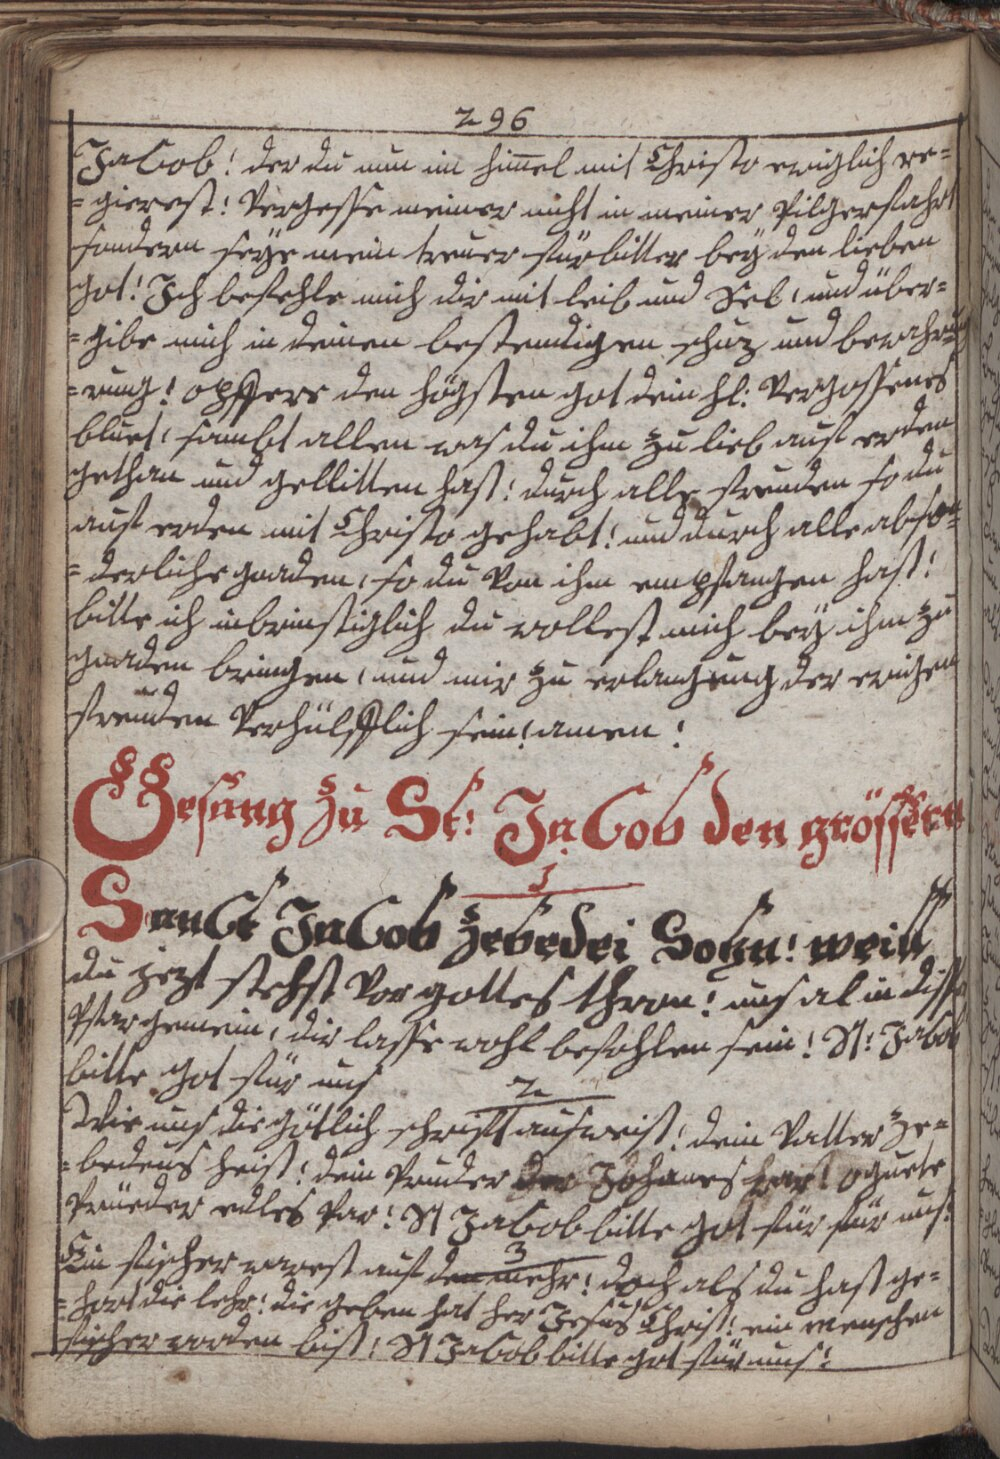 296
JaCob! der du nun im himel mit Christo ewiglich re=
=gierest! Vergesse meiner nicht in meiner Pilgerfahrt
sondern seÿe mein treuer fürbitter beÿ den lieben
got! Ich befehle mich dir mit leib und Sel, und über=
=gibe mich in deinen bestendigen schuz und bewahr
=rung! opffere den högsten got dein hl: Vergossenes
bluet, sambt allen was du ihm zu lieb auf erden
gethan und gellitten hast! durch alle freuden so du
auf erden mit Christo gehabt! und durch alle abson=
=derliche gnaden, so du Von ihm empfangen hast!
bitte ich inbrinstiglich du wollest mich beÿ ihm zu
gnaden bringen, und mir zu erlangung der ewigen
freuden Verhülfflich sein! amen!
Gesang zu St: JaCob den grössern
1
SanCt JaCob zebedei Sohn! weill
du jezt stehst Vor gottes thron! uns al in diser
Pfargemein, dir lasse wohl befohlen sein! St: JaCob
bitte got für uns
2
Wie uns die götlich schrifft ausweist! dein Vatter Ze=
=bedeus heist! dein Pruder der Johanes war! o guete
Prüeder edles Par! St JaCob bitte got für für uns!
3
Ein fischer warest auf den mehr! doch als du hast ge=
=hört die lehr! die geben hat her Jesus Christ! ein menschen
fischer worden bist! St JaCob bitte got für uns!